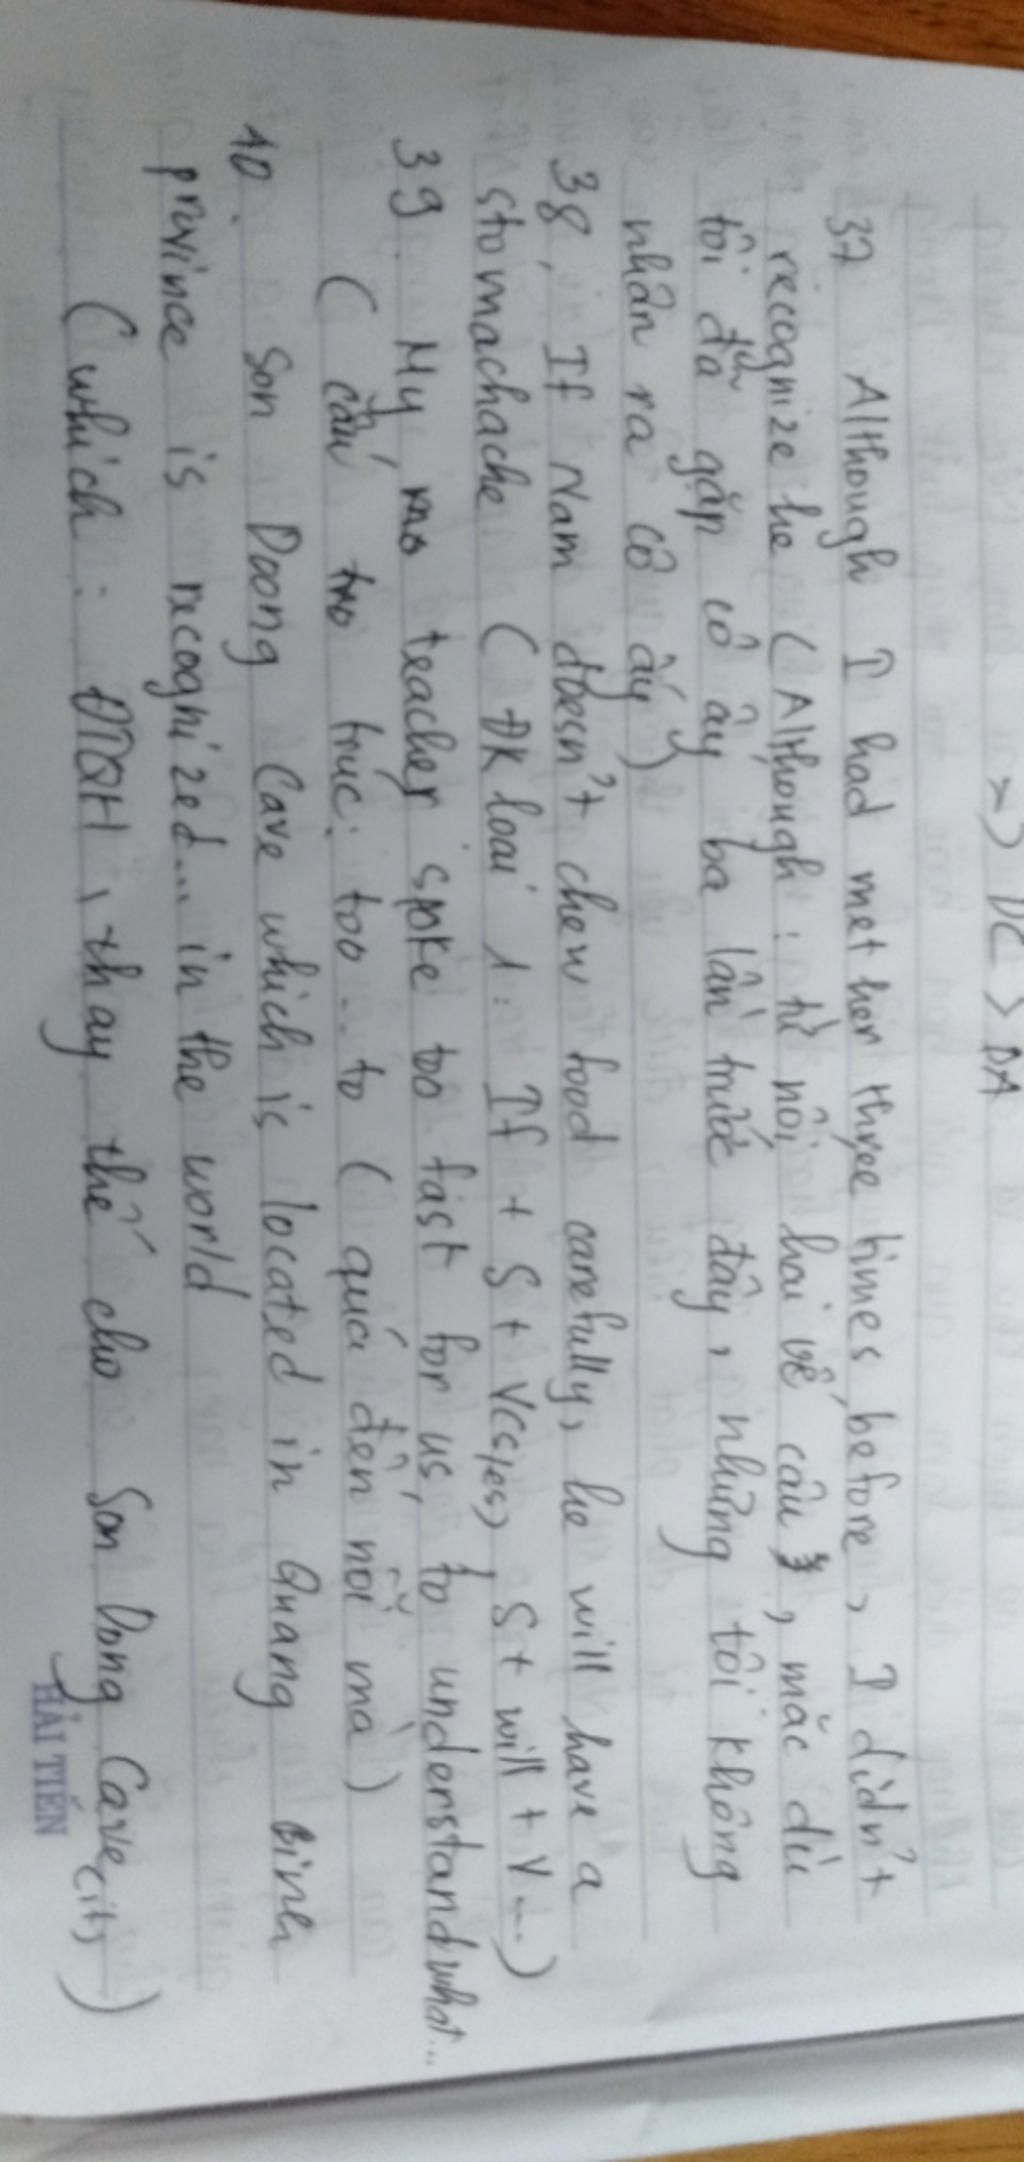 => DC > DA
37 Although I had met her three times before, I didn't
recognize he (Although : từ nối hai vế câu, mặc dù
tôi đã gặp cô ấy ba lần trước đây, nhưng tôi không
nhận ra cô ấy)
38, If Nam doesn't chew food carefully, he will have a
stomachache (ĐK loại 1: If + S + V(s/es), S + will + V...)
39. My teacher spoke too fast for us, to understand what...
(cấu trúc: too... to (quá đến nỗi mà)
40. Son Doong Cave which is located in Quang Binh
province is recognized... in the world
(which: ĐTQH, thay thế cho Son Dong Cave (its)
HẢI TIẾN